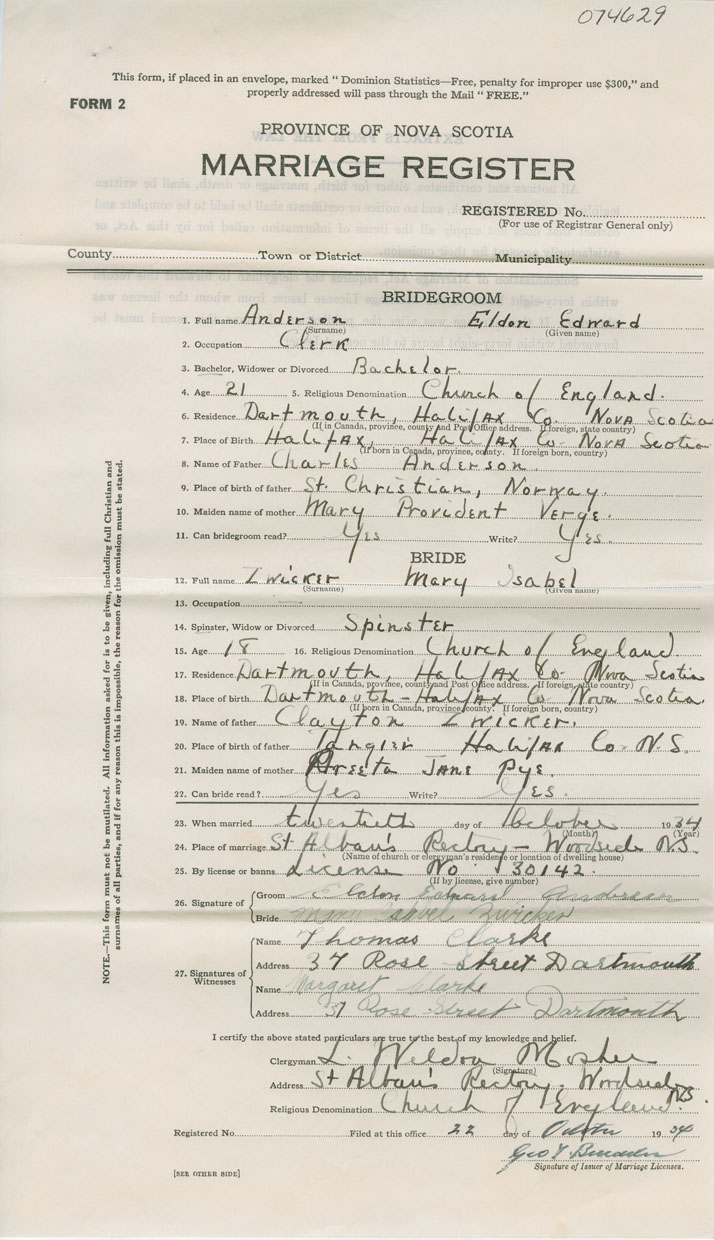 074629
This form, if placed in an envelope, marked “ Dominion Statistics—Free, penalty for improper use $300,” and
properly addressed will pass through the Mail “ FREE.”
FORM 2
PROVINCE OF NOVA SCOTIA
MARRIAGE REGISTER
REGISTERED No.
(For use of Registrar General only)
County Town or District Municipality
BRIDEGROOM
1. Full name Anderson Eldon Edward
(Surname) (Given name)
2. Occupation Clerk
3. Bachelor, Widower or Divorced Bachelor.
4. Age 21 5. Religious Denomination Church of England.
6. Residence Dartmouth, Halifax Co. Nova Scotia
(If in Canada, province, county and Post Office address. If foreign, state country)
7. Place of Birth Halifax, Halifax Co. Nova Scotia
(If born in Canada, province, county. If foreign born, country)
8. Name of Father Charles Anderson.
9. Place of birth of father St. Christian, Norway.
10. Maiden name of mother Mary Provident Verge.
11. Can bridegroom read? Yes Write? Yes.
BRIDE
12. Full name Zwicker Mary Isabel
(Surname) (Given name)
13. Occupation
14. Spinster, Widow or Divorced Spinster
15. Age 18 16. Religious Denomination Church of England.
17. Residence Dartmouth, Halifax Co. Nova Scotia
(If in Canada, province, county and Post Office address. If foreign, state country)
18. Place of birth Dartmouth - Halifax Co. Nova Scotia.
(If born in Canada, province, county. If foreign born, country)
19. Name of father Clayton Zwicker.
20. Place of birth of father Tangier Halifax Co. N.S.
21. Maiden name of mother Jane Pye.
22. Can bride read? Yes Write? Yes.
23. When married twentieth day of October 1934
(Month) (Year)
24. Place of marriage St Alban's Rectory - Woodside N.S.
(Name of church or clergyman's residence or location of dwelling house)
25. By license or banns License No 30142.
(If by license, give number)
26. Signature of
Groom Eldon Edward Anderson
Bride Mary Isabel Zwicker
27. Signatures of Witnesses
Name Thomas Clarke
Address 37 Rose Street Dartmouth
Name Margaret Clarke
Address 37 Rose Street Dartmouth
I certify the above stated particulars are true to the best of my knowledge and belief.
Clergyman L. Weldon Mosher
(Signature)
Address St Alban's Rectory, Woodside N.S.
Religious Denomination Church of England.
Registered No. Filed at this office 22 day of October 1934
Geo
Signature of Issuer of Marriage Licenses.
[SEE OTHER SIDE]
NOTE.—This form must not be mutilated. All information asked for is to be given, including full Christian and
surnames of all parties, and if for any reason this is impossible, the reason for the omission must be stated.